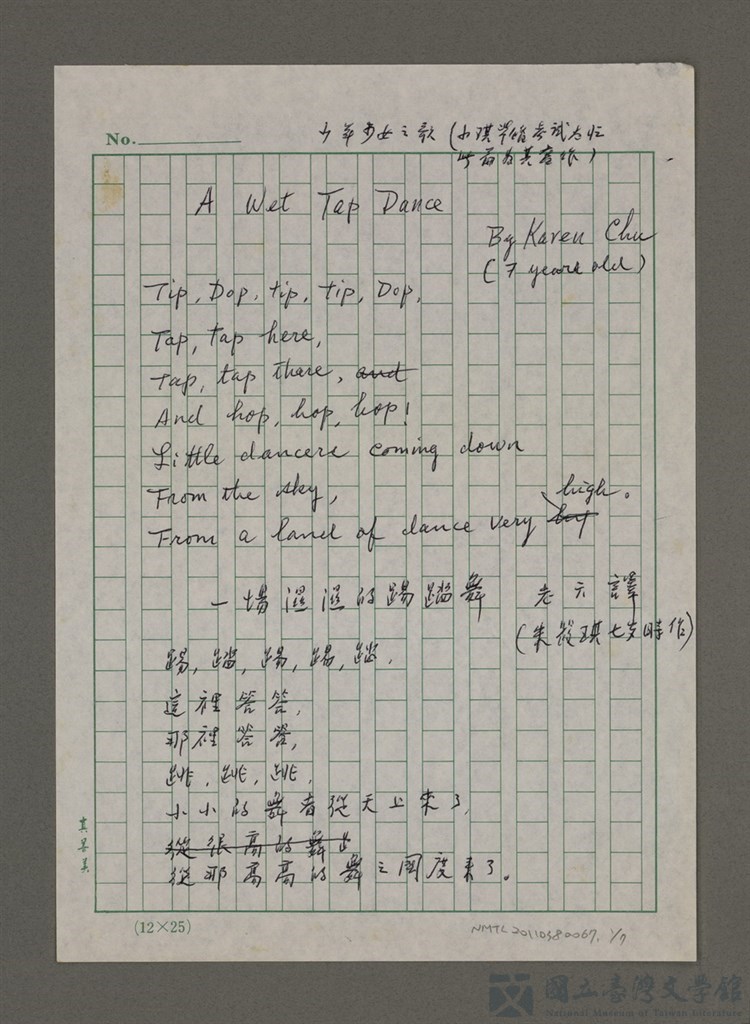 No.
少年少女之歌(小琪
A Wet Tap Dance
By Karen Chu
(7 years old)
Tip, Dop, tip, tip, Dop,
Tap, tap here,
Tap, tap there, and
And hop, hop, hop!
Little dancers coming down
From the sky,
high.
From a land of dance very
一場濕濕的踢踏舞 老六譯
(朱筱琪七岁時作)
踢,踏,踢,踢,踏,
這裡答答,
那裡答答,
跳,跳,跳,
小小的舞者從天上來了,
從很高的舞
從那高高的舞之國度來了。
(12×25)
NMTL20110380067. 1/7
國立臺灣文學館
National Museum of Taiwan Literature